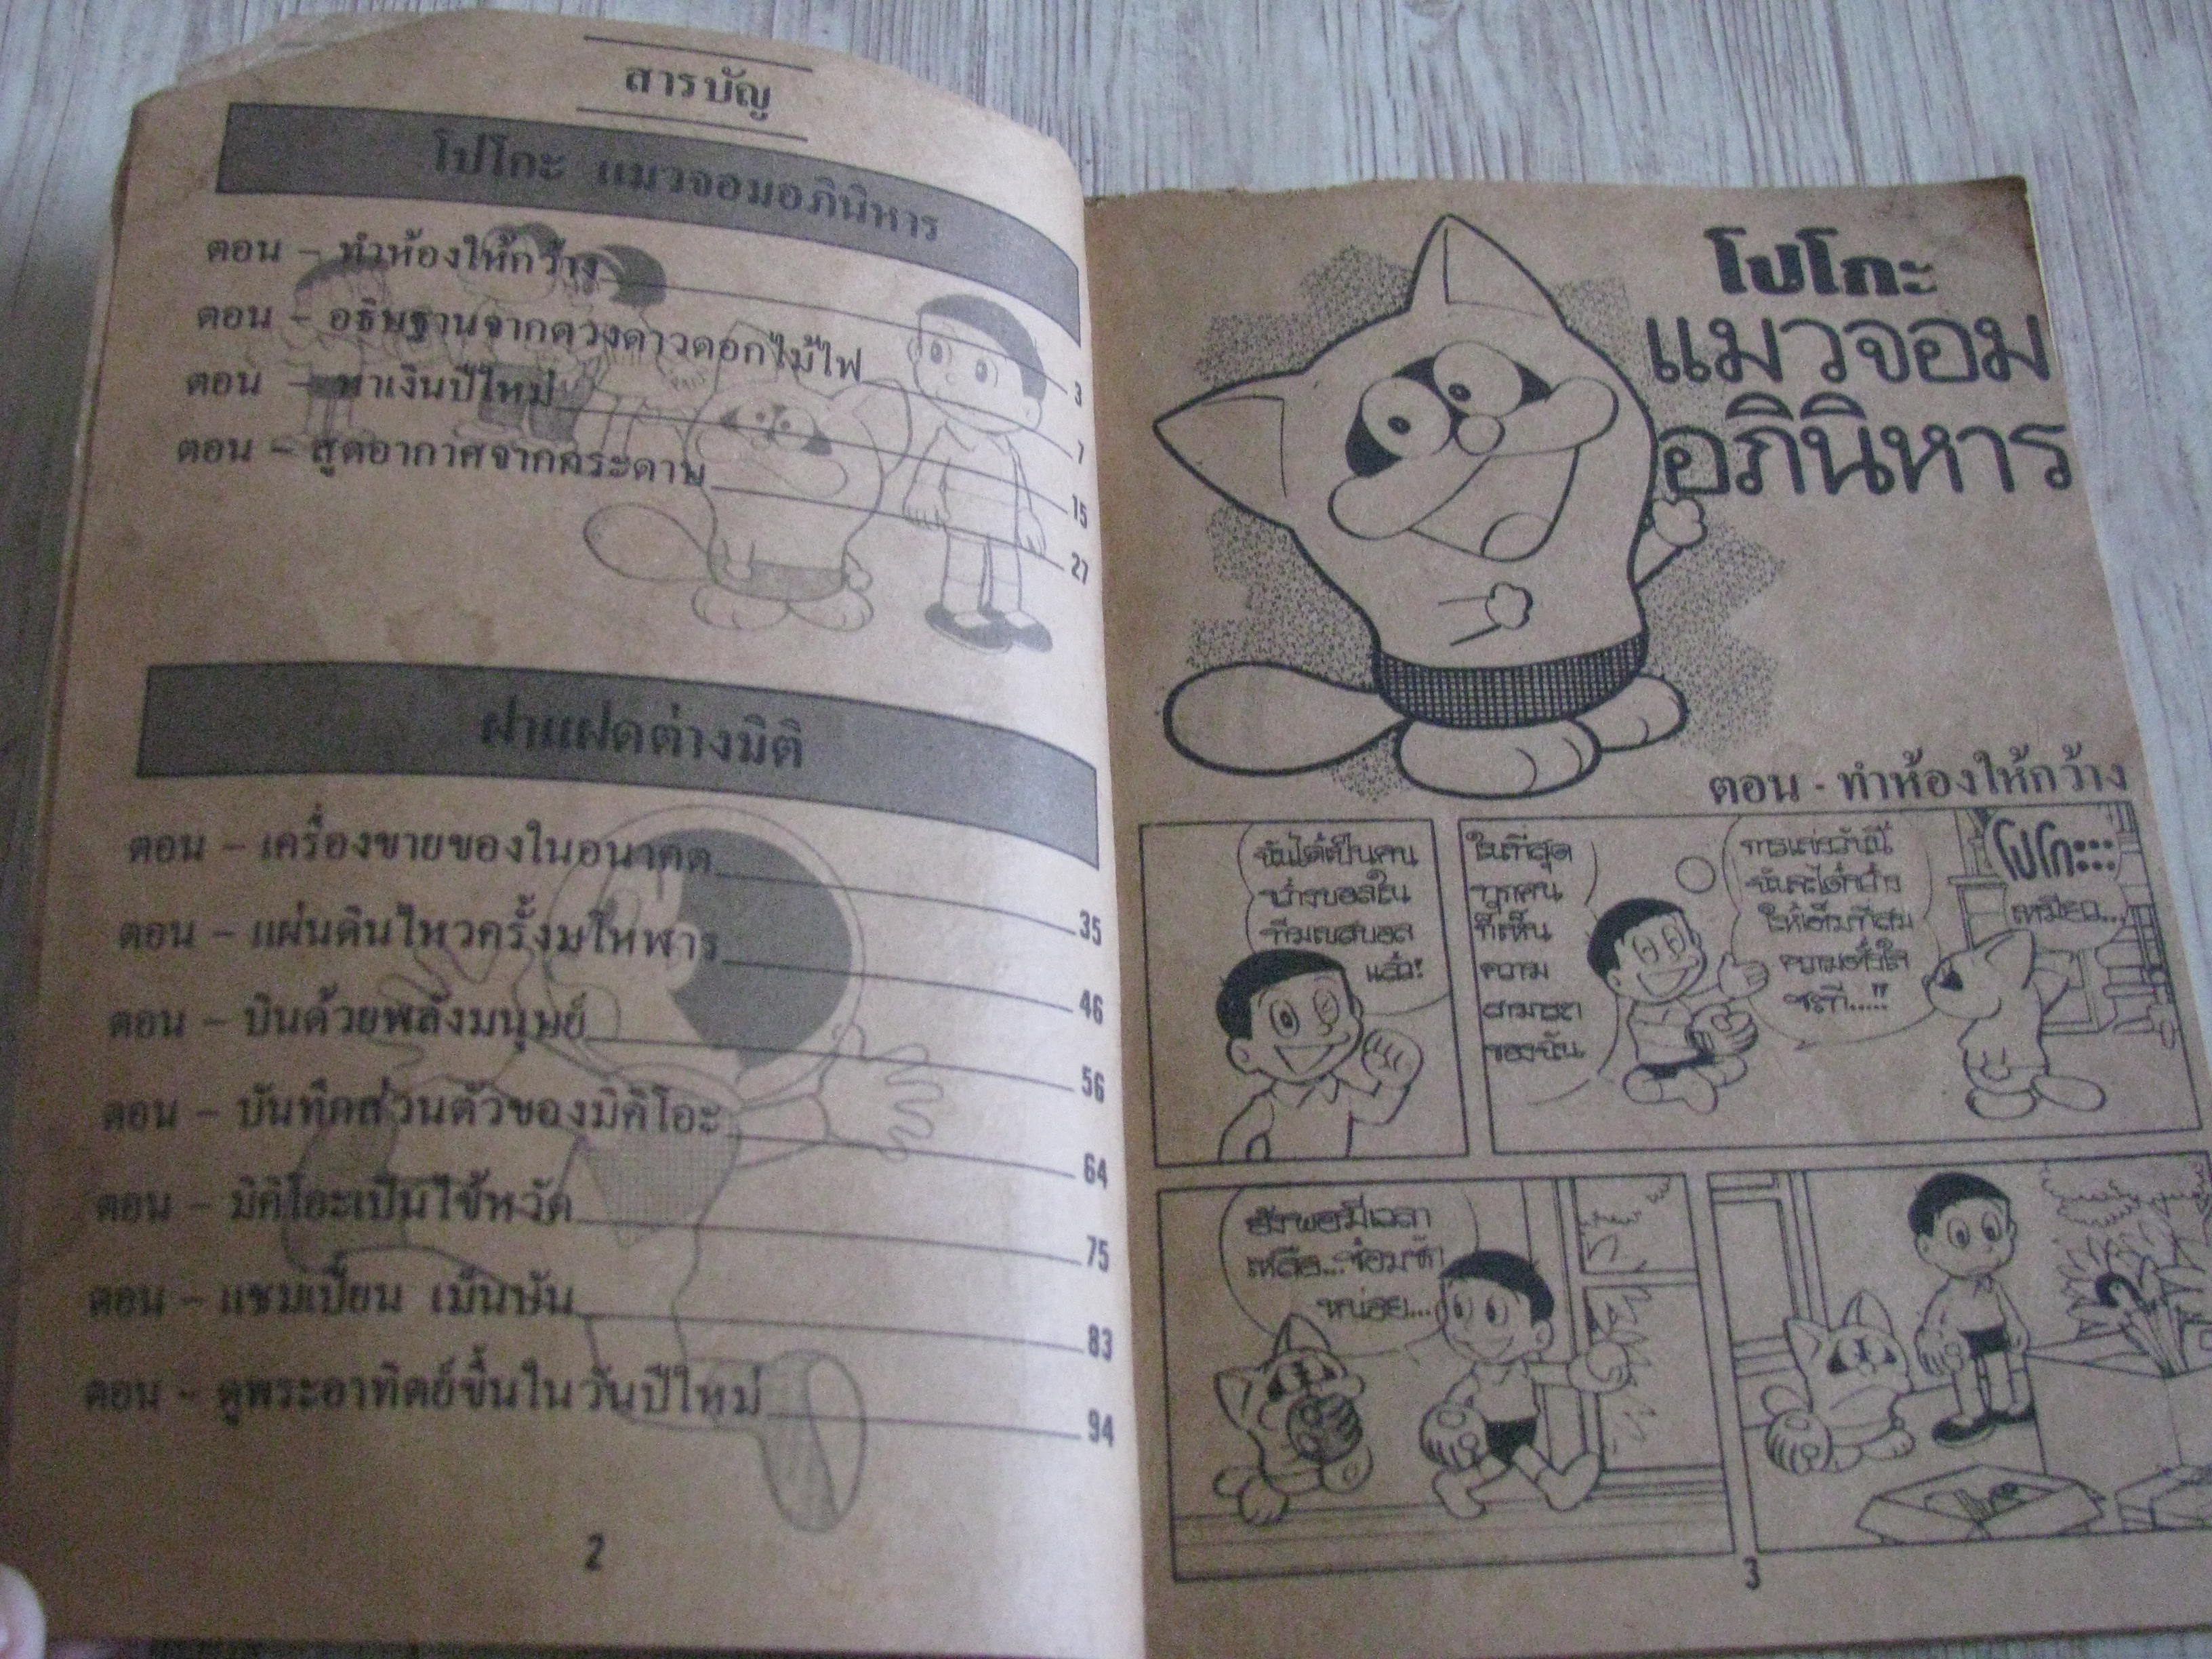 สารบัญ
โปโกะ แมวจอมอภินิหาร
ตอน - ทำห้องให้กว้าง 3
ตอน - อธิษฐานจากดวงดาวดอกไม้ไฟ 7
ตอน - หาเงินปีใหม่ 15
ตอน - สูดอากาศจากกระดาษ 27
ฝาแฝดต่างมิติ
ตอน - เครื่องขายของในอนาคต 35
ตอน - แผ่นดินไหวครั้งมโหฬาร 46
ตอน - บินด้วยพลังมนุษย์ 56
ตอน - บันทึกส่วนตัวของมิคิโอะ 64
ตอน - มิคิโอะเป็นไข้หวัด 75
ตอน - แชมเปี้ยน เม็นษัน 83
ตอน - ดูพระอาทิตย์ขึ้นในวันปีใหม่ 94
2
โปโกะ
แมวจอม
อภินิหาร
ตอน - ทำห้องให้กว้าง
ฉันได้เป็นคน
ขว้างบอลใน
ทีมเบสบอล
แล้ว!
ในที่สุด
ทุกคน
ก็เห็น
ความ
สามารถ
ของฉัน
การแข่งวันนี้
ฉันจะได้ขว้าง
ให้เต็มที่สม
ความตั้งใจ
ซะที....."
โปโกะ:::
เหมียว...
ยังพอมีเวลา
เหลือ...ซ้อมซัก
หน่อย...
3